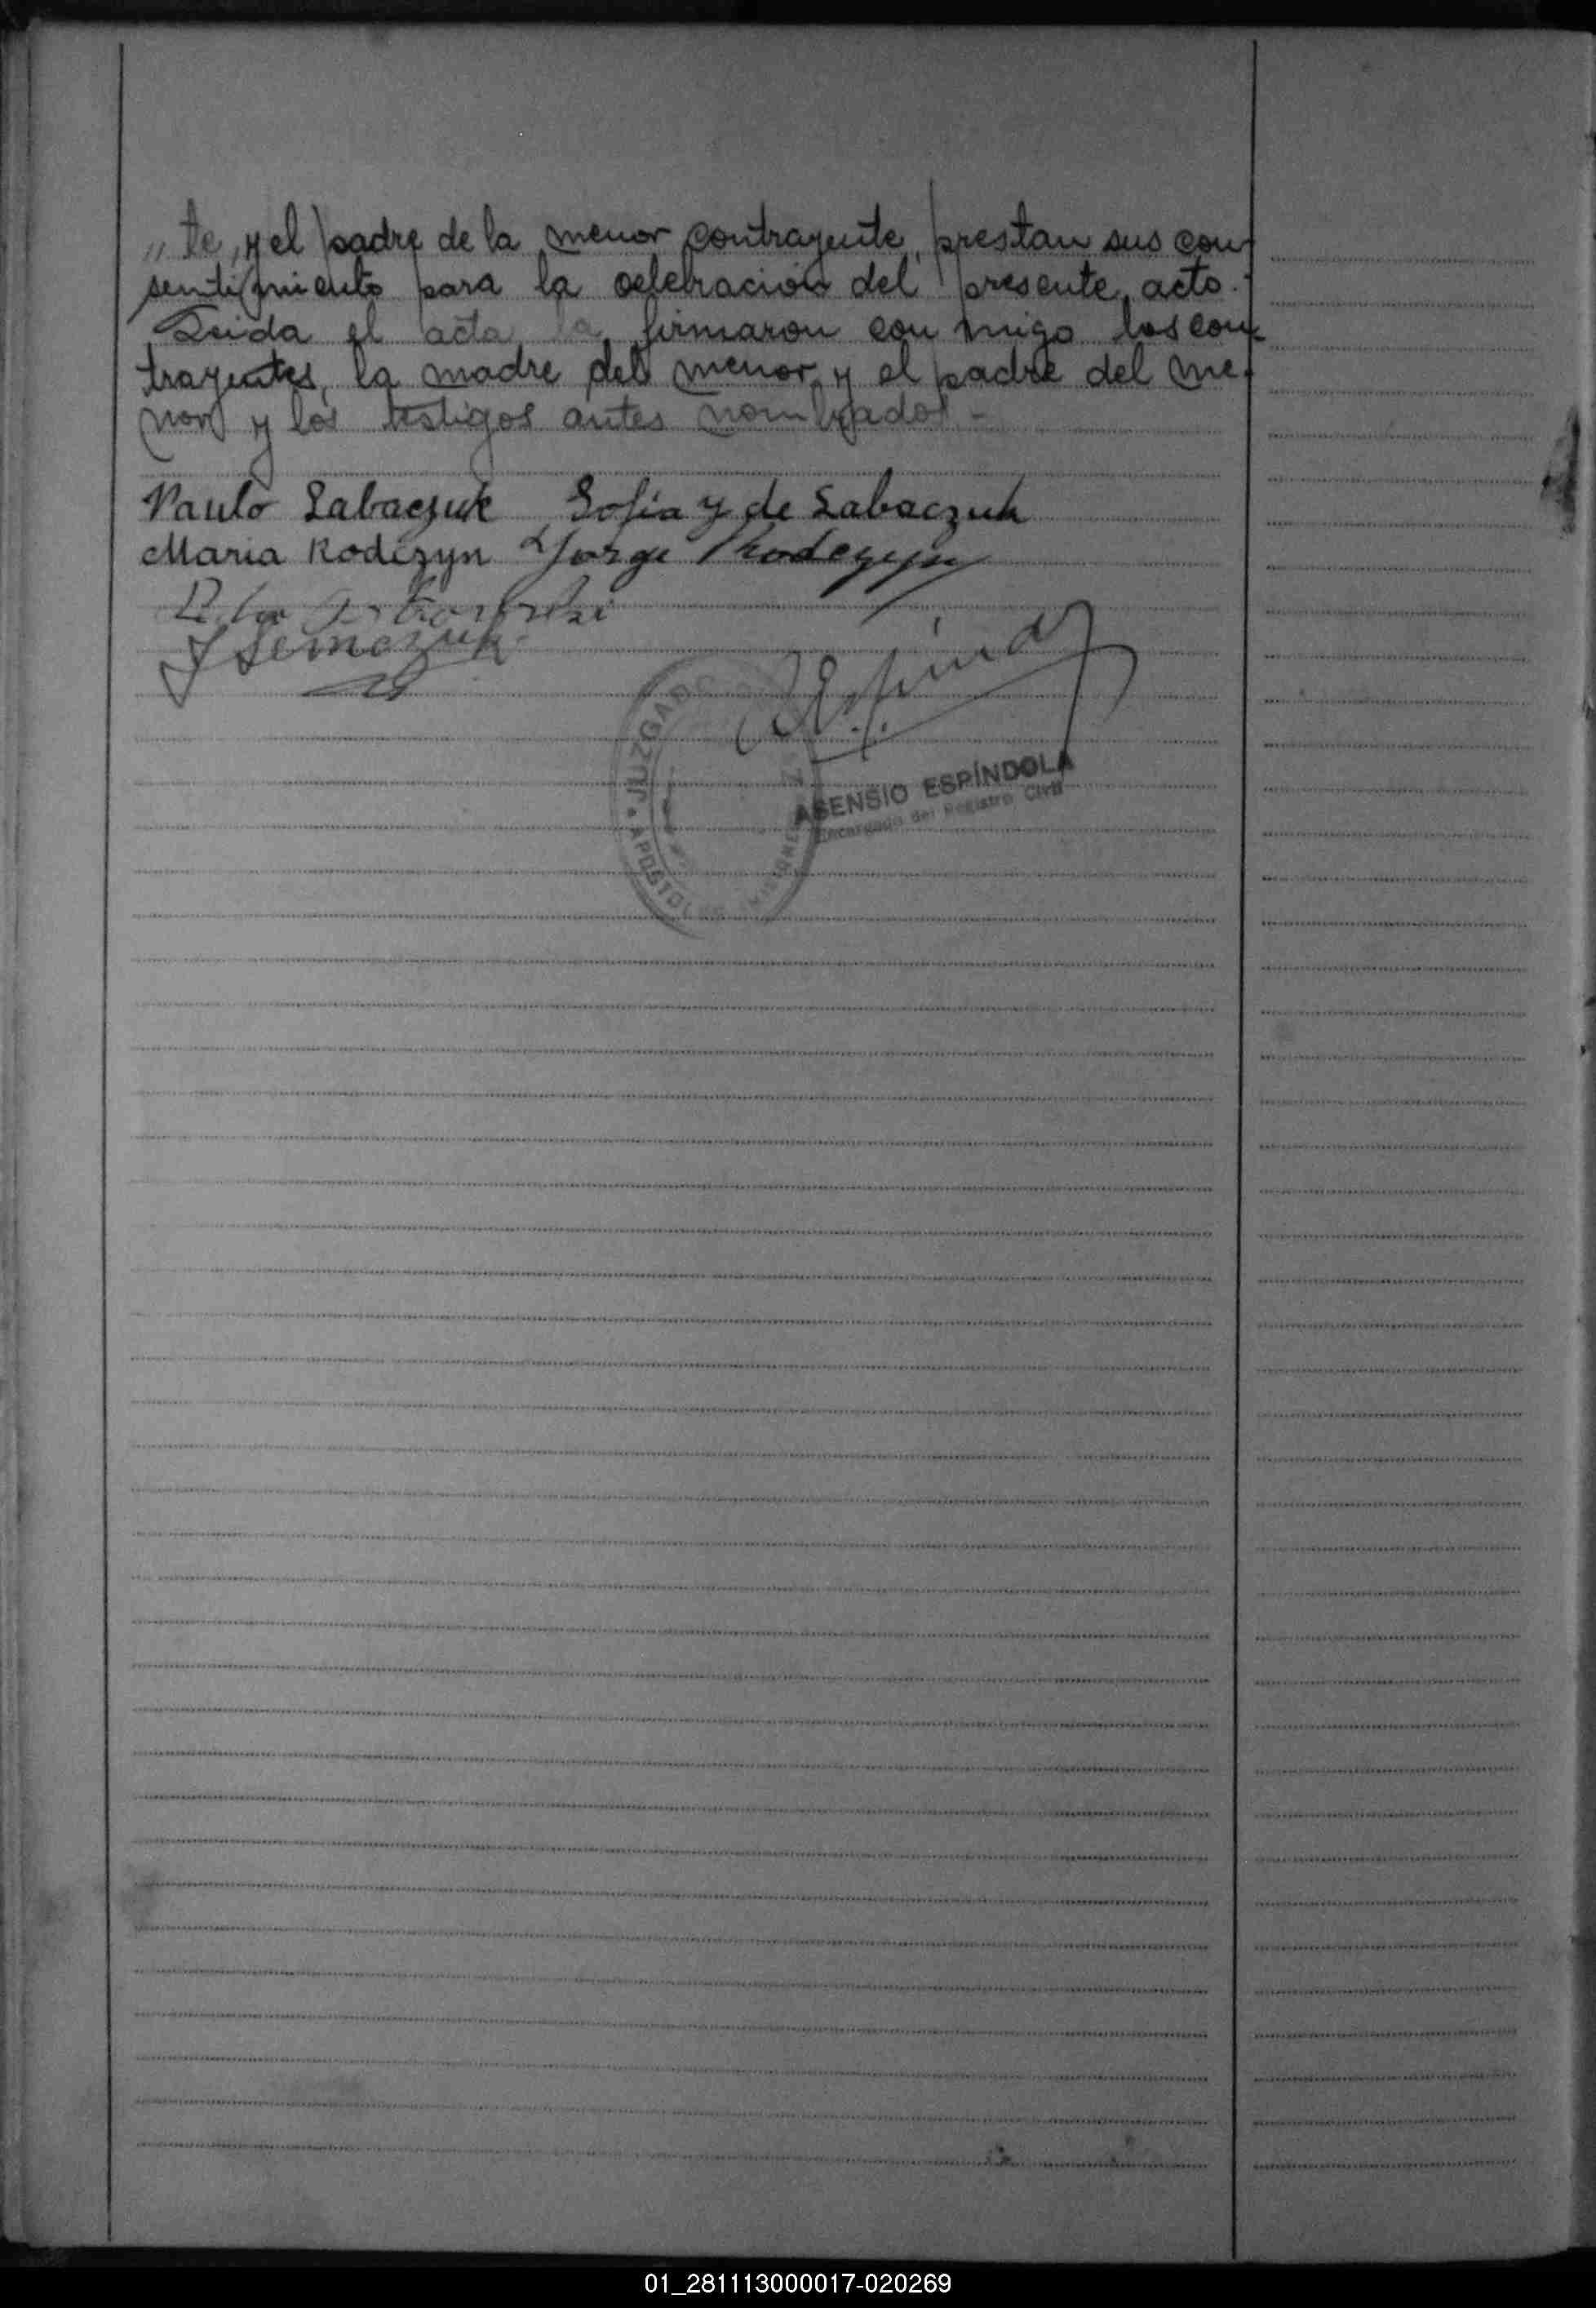 „te, y el padre de la menor contrayente, prestan sus con
sentimiento para la celebración del presente acto.
Leida el acta la firmaron con migo los con
trayentes, la madre del menor y el padre del me
nor y los testigos antes nombrados.-
Paulo Labaczuk Sofia y de Labaczuk
Maria Rodczyn Jorge Rodczyn
J Semczuk
JUZGADO
APOSTOLES MISIONES
ASENSIO ESPÍNDOLA
Encargado del Registro Civil
01_281113000017-020269